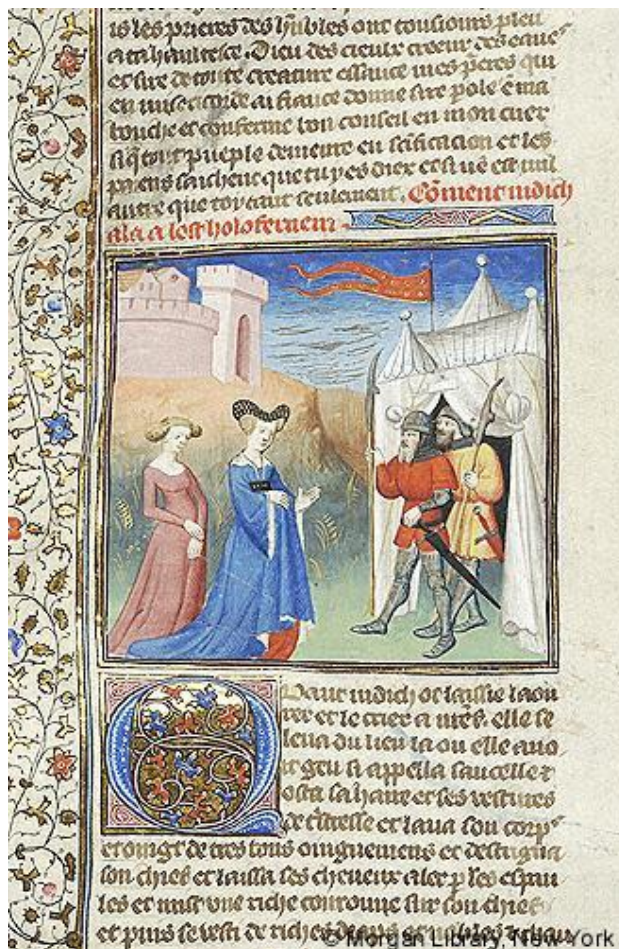 is les prieres des hũbles ont tousiours pleu
a ta haultesce. Dieu des cieulx creeur des eaues
et sire de toute creature essauce mes p̃eres qui
en misericorde ai fiance donne sire pole ẽ ma
bouche et conferme ton conseil en mon cuer
si q̃ tout pueple demeure en scificacion et les
paiens saichent que tu yes diex et si nẽ est nul
autre que toy tant seulement. Cõment iudich
ala a lost holofernem
Quant iudich ot laissie laou
rer et le crier a nr̃e s. elle se
leua du lieu la ou elle auo
it geu si appella sa ucelle
osta sa haire et ses vestures
de tristesse et laua son corps
et oingt de tres bons oinguemens et
son chief et laissa ses cheueux aler p les espau
les et mist vne riche couronne sur son chief
et puis se vesti de riches
© Morgan Library, New York